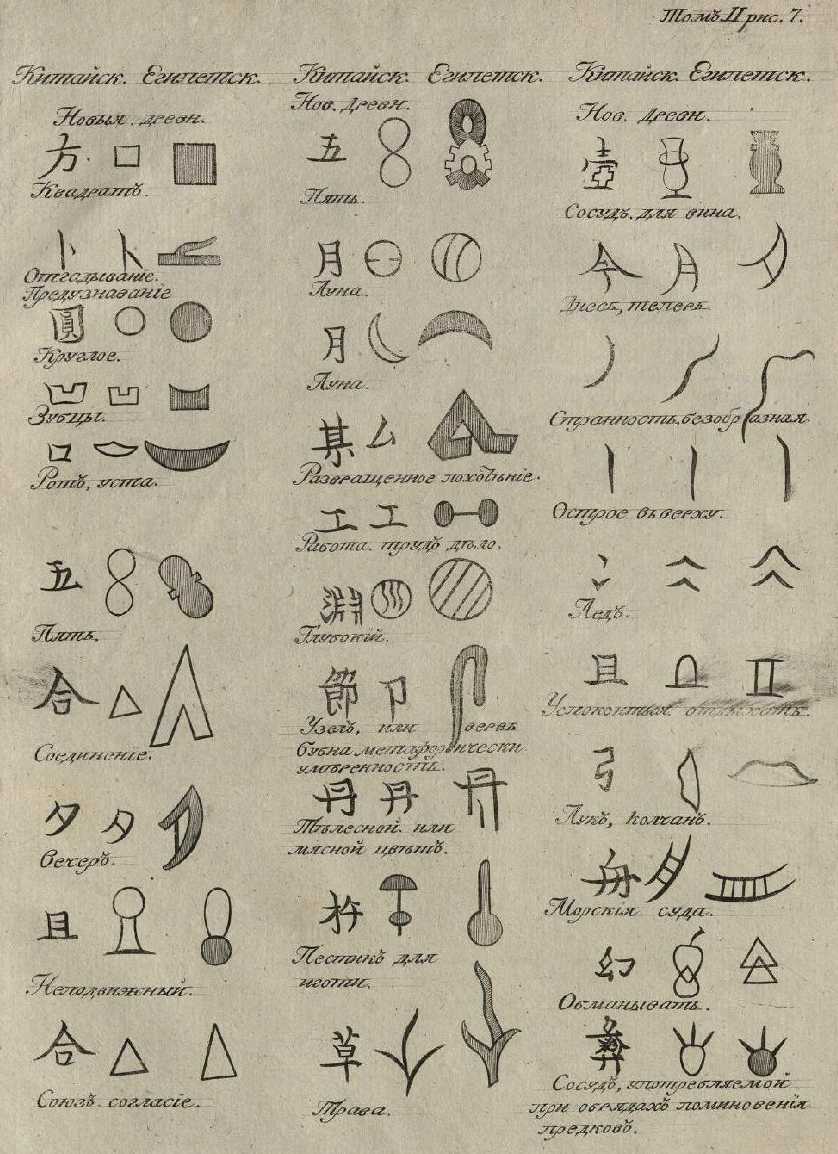 Томъ II рис. 7.
Китайск. Египетск.
Новыя. древн.
方
Квадратъ.
卜
Отгадыванiе.
Предузнаванiе
圓
Круглое.
Зубцы.
口
Ротъ, уста.
五
Пять.
合
Соединенiе.
夕 夕
Вечеръ.
且
Неподвижный.
合
Союзъ. согласiе.
Китайск. Египетск.
Нов. Древн.
五
Пять.
月
Луна.
月
Луна.
某 厶
Развращенное похотѣнiе.
工 工
Работа. трудъ дѣло.
淵
Глубокiй.
節 卩
Узелъ, или вервь
бубна метафорически
умѣренность.
丹 丹
Тѣлесной или
мясной цвѣтъ.
杵
Пестикъ для
иготи.
草
Трава.
Китайск. Египетск.
Нов. Древн.
壺
Сосудъ. для вина.
今
Днесь, теперь
Странность. безобразная
Острое вверху.
Ледъ.
且
Успокоиться отдыхать.
弓
Лукъ, колчанъ.
舟
Морскiя суда.
幻
Обманывать.
彝
Сосудъ, употребляемой
при обрядахъ поминовенiя
предковъ.